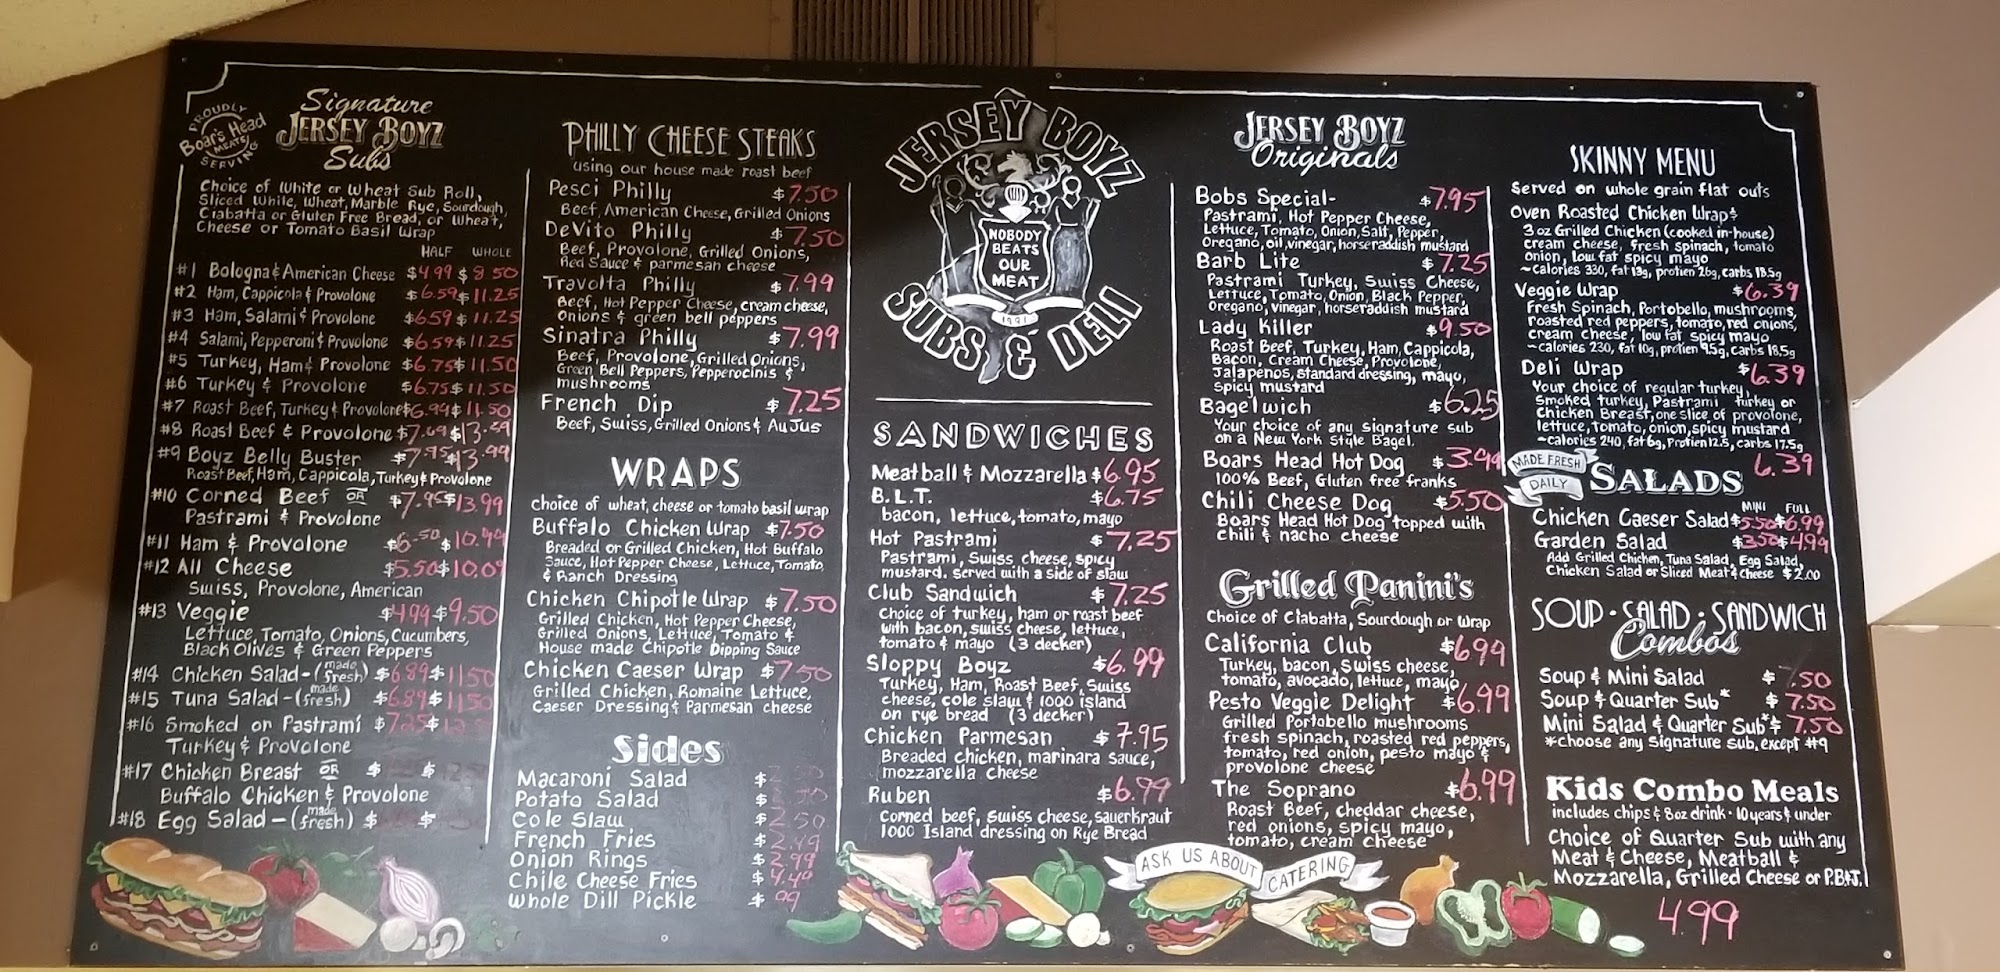 PROUDLY
Boar's Head
MEATS
SERVING
Signature
JERSEY BOYZ
Subs
Choice of White or Wheat Sub Roll,
Sliced White, Wheat, Marble Rye, Sourdough,
Ciabatta or Gluten Free Bread, or Wheat,
Cheese or Tomato Basil Wrap
HALF WHOLE
#1 Bologna & American Cheese $4.99 $8.50
#2 Ham, Cappicola & Provolone $6.59 $11.25
#3 Ham, Salami & Provolone $6.59 $11.25
#4 Salami, Pepperoni & Provolone $6.59 $11.25
#5 Turkey, Ham & Provolone $6.75 $11.50
#6 Turkey & Provolone $6.75 $11.50
#7 Roast Beef, Turkey & Provolone $6.99 $11.50
#8 Roast Beef & Provolone $7.69 $13.59
#9 Boyz Belly Buster $7.95 $13.99
Roast Beef, Ham, Cappicola, Turkey & Provolone
#10 Corned Beef OR $7.95 $13.99
Pastrami & Provolone
#11 Ham & Provolone $6.50 $10.99
#12 All Cheese $5.50 $10.09
Swiss, Provolone, American
#13 Veggie $4.99 $9.50
Lettuce, Tomato, Onions, Cucumbers,
Black Olives & Green Peppers
#14 Chicken Salad - (made fresh) $6.89 $11.50
#15 Tuna Salad - (made fresh) $6.89 $11.50
#16 Smoked or Pastrami $7.25 $
Turkey & Provolone
#17 Chicken Breast OR $ $
Buffalo Chicken & Provolone
#18 Egg Salad - (made fresh) $ $
PHILLY CHEESE STEAKS
using our house made roast beef
Pesci Philly $7.50
Beef, American Cheese, Grilled Onions
DeVito Philly $7.50
Beef, Provolone, Grilled Onions,
Red Sauce & parmesan cheese
Travolta Philly $7.99
Beef, Hot Pepper Cheese, cream cheese,
onions & green bell peppers
Sinatra Philly $7.99
Beef, Provolone, Grilled Onions,
Green Bell Peppers, Pepperocinis &
mushrooms
French Dip $7.25
Beef, Swiss, Grilled Onions & Au Jus
WRAPS
choice of wheat, cheese or tomato basil wrap
Buffalo Chicken Wrap $7.50
Breaded or Grilled Chicken, Hot Buffalo
Sauce, Hot Pepper Cheese, Lettuce, Tomato,
& Ranch Dressing
Chicken Chipotle Wrap $7.50
Grilled Chicken, Hot Pepper Cheese,
Grilled Onions, Lettuce, Tomato &
House made Chipotle Dipping Sauce
Chicken Caeser Wrap $7.50
Grilled Chicken, Romaine Lettuce,
Caeser Dressing & Parmesan cheese
Sides
Macaroni Salad $
Potato Salad $
Cole Slaw $2.50
French Fries $2.49
Onion Rings $2.99
Chile Cheese Fries $4.49
Whole Dill Pickle $ .99
JERSEY BOYZ
NOBODY
BEATS
OUR
MEAT
1991
SUBS & DELI
SANDWICHES
Meatball & Mozzarella $6.95
B.L.T. $6.75
bacon, lettuce, tomato, mayo
Hot Pastrami $7.25
Pastrami, Swiss cheese, spicy
mustard. served with a side of slaw
Club Sandwich $7.25
Choice of turkey, ham or roast beef
with bacon, swiss cheese, lettuce,
tomato & mayo (3 decker)
Sloppy Boyz $6.99
Turkey, Ham, Roast Beef, Swiss
cheese, cole slaw & 1000 island
on rye bread (3 decker)
Chicken Parmesan $7.95
Breaded chicken, marinara sauce,
mozzarella cheese
Ruben $6.99
corned beef, swiss cheese, sauerkraut
1000 Island dressing on Rye Bread
ASK US ABOUT CATERING
JERSEY BOYZ
Originals
Bobs Special- $7.95
Pastrami, Hot Pepper Cheese,
Lettuce, Tomato, Onion, Salt, Pepper,
Oregano, oil, vinegar, horseraddish mustard
Barb Lite $7.25
Pastrami Turkey, Swiss Cheese,
Lettuce, Tomato, Onion, Black Pepper,
Oregano, vinegar, horseraddish mustard
Lady Killer $9.50
Roast Beef, Turkey, Ham, Cappicola,
Bacon, Cream Cheese, Provolone,
Jalapenos, standard dressing, mayo,
spicy mustard
Bagelwich $6.25
Your choice of any signature sub
on a New York Style Bagel.
Boars Head Hot Dog $3.99
100% Beef, Gluten free franks
Chili Cheese Dog $5.50
Boars Head Hot Dog topped with
chili & nacho cheese
Grilled Panini's
Choice of Ciabatta, Sourdough or Wrap
California Club $6.99
Turkey, bacon, swiss cheese,
tomato, avocado, lettuce, mayo
Pesto Veggie Delight $6.99
Grilled Portobello mushrooms
fresh spinach, roasted red peppers,
tomato, red onion, pesto mayo &
provolone cheese
The Soprano $6.99
Roast Beef, cheddar cheese,
red onions, spicy mayo,
tomato, cream cheese
SKINNY MENU
served on whole grain flat outs
Oven Roasted Chicken Wrap $
3 oz Grilled Chicken (cooked in-house)
cream cheese, fresh spinach, tomato
onion, low fat spicy mayo
~calories 330, fat 13g, protien 26g, carbs 18.5g
Veggie Wrap $6.39
Fresh Spinach, Portobello, mushrooms,
roasted red peppers, tomato, red onions,
cream cheese, low fat spicy mayo
~calories 230, fat 10g, protien 9.5g, carbs 18.5g
Deli Wrap $6.39
Your choice of regular turkey,
Smoked turkey, Pastrami turkey or
Chicken Breast, one slice of provolone,
lettuce, tomato, onion, spicy mustard
~calories 240, fat 6g, Protien 12.5, carbs 17.5g
6.39
MADE FRESH
DAILY
SALADS
MINI FULL
Chicken Caeser Salad $5.50 $6.99
Garden Salad $3.50 $4.99
Add Grilled Chicken, Tuna Salad, Egg Salad,
Chicken Salad or Sliced Meat & Cheese $2.00
SOUP · SALAD · SANDWICH
Combos
Soup & Mini Salad $7.50
Soup & Quarter Sub* $7.50
Mini Salad & Quarter Sub* $7.50
*choose any signature sub, except #9
Kids Combo Meals
includes chips & 8oz drink · 10 years & under
Choice of Quarter Sub with any
Meat & Cheese, Meatball &
Mozzarella, Grilled Cheese or P.B.&J.
4.99